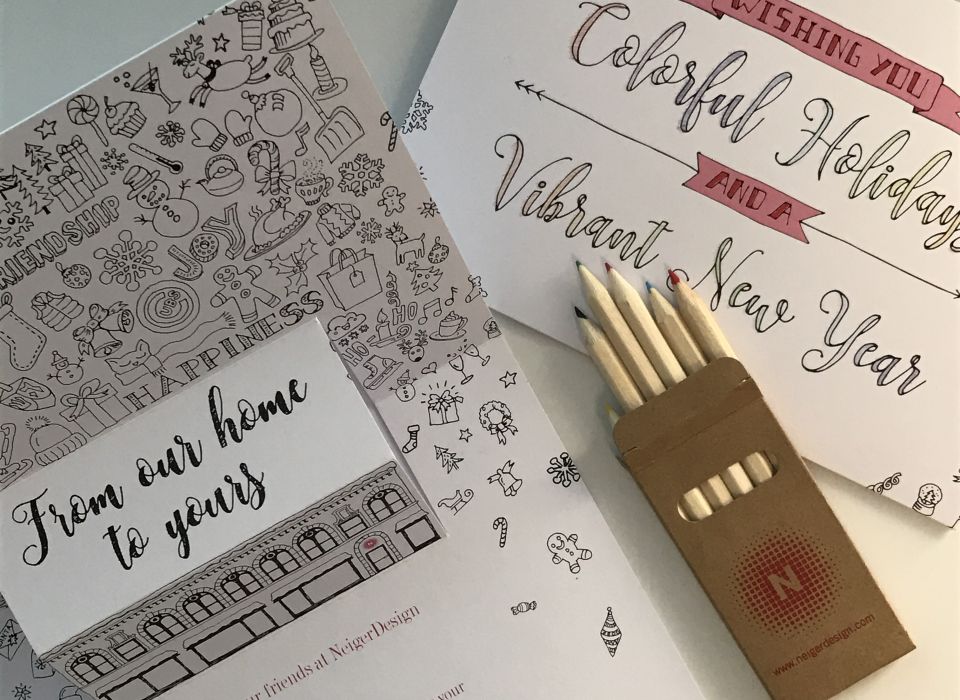 FRIENDSHIP
JOY
HO
HO
HAPPINESS
From our home
to yours
our friends at NeigerDesign
your
WISHING YOU
Colorful Holidays
AND A
Vibrant New Year
N
www.neigerdesign.com